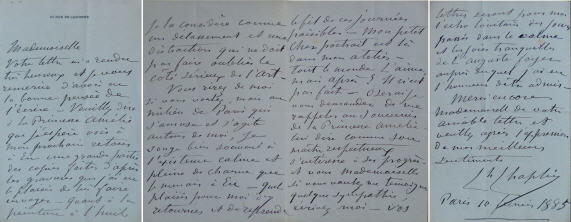 Mademoiselle
Votre lettre m'a rendu
très heureux et je vous
remercie d'avoir eu
la bonne pensée de
l'écrire - Veuillez dire
à la Princesse Amélie
que j'espère voir à
mon prochain retour
à Eu une grande partie
des copies faites d'après
des gravures que j'ai eu
le plaisir de lui faire
envoyer - Quant à la
peinture à l'huile
je la considère comme
un délassement et une
distraction qui ne doit
pas faire oublier le
coté sérieux de l'Art
Vous rirez de moi
si vous voulez, mais au
milieu de Paris qui
s'amuse et s'agite
autour de moi je
songe bien souvent à
l'existence calme et
pleine de charme que
je menais à Eu - quel
plaisir pour moi d'y
retourner et de reprendre
le fil de ces journées
paisibles - Mon petit
cher portrait est là
dans mon atelier -
tout le monde l'aime
moi après! Il n'est
pas fait - Oserai je
vous demander de me
rappeler au souvenir
de la Princesse Amélie
lui dire comme son
maître respectueux
s'intéresse à ses progrès -
et vous mademoiselle
si vous voulez me témoigner
quelque sympathie,
écrivez moi - vos
lettres seront pour moi
l'écho lointain des jours
passés dans le calme
et les joies tranquilles
de l'auguste foyer
auprès duquel j'ai eu
l'honneur d'être admis -
Merci encore
mademoiselle de votre
aimable lettre et
veuillez agréer l'expression
de mes meilleurs
sentiments
Ch Chaplin
Paris 10 1885